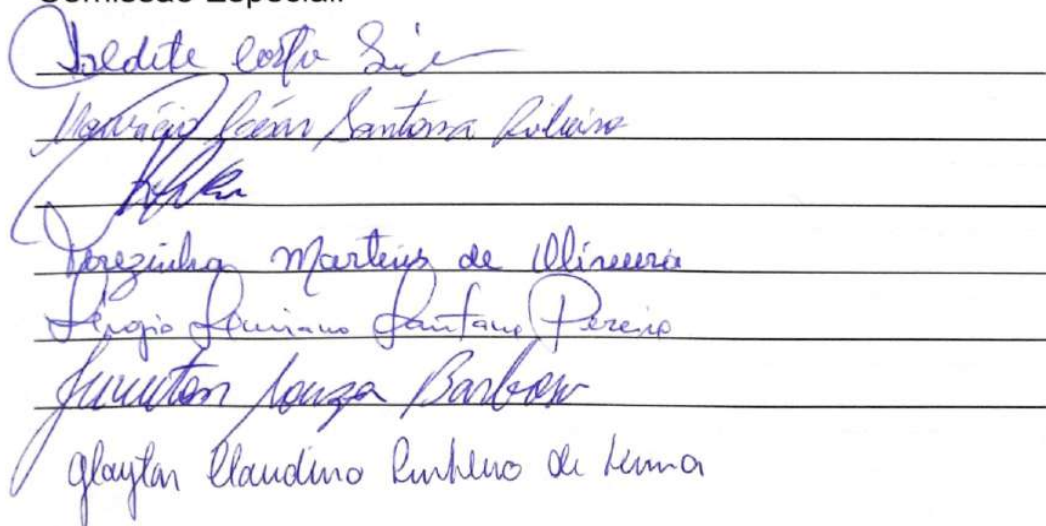 Comissão Especial:
Valdete Costa
Maurício César Santana Ribeiro
Terezinha Martins de Oliveira
Sérgio Santana Pereira
Souza Barbosa
Glayton Claudino Pinheiro de Lima